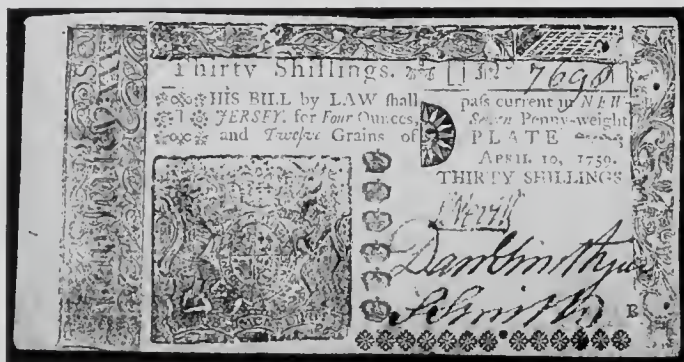 Thirty Shillings. No 7698
HIS BILL by LAW ſhall paſs current in NEW
JERSEY. for Four Ounces, Seven Penny-weight
and Twelve Grains of PLATE
APRIL 10, 1759.
THIRTY SHILLINGS
Dan Smith Jur
S Smith